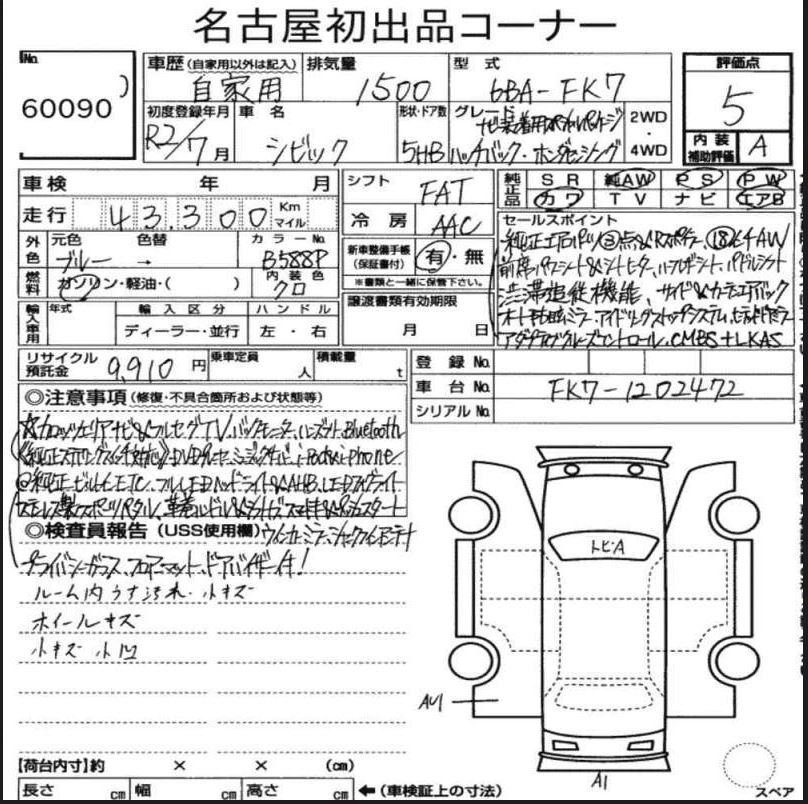 名古屋初出品コーナー
No.
60090
車歴(自家用以外は記入)
自家用
排気量
1500
型式
6BA-FK7
評価点
5
初度登録年月
R2/7月
車名
シビック
形状・ドア数
5HB
グレード
ナビ装着用スペシャルパッケージ
ハッチバック・ホンダセンシング
2WD
・
4WD
内装
補助評価
A
車検 年 月
走行 43,300 Km マイル
外色
元色 色替 カラーNo.
ブルー → B588P
燃料
ガソリン・軽油・( )
内装色
クロ
輸入車用
年式
輸入区分
ディーラー・並行
ハンドル
左・右
シフト
FAT
冷房
AAC
新車整備手帳
(保証書付)
有・無
※書類と一緒に保管下さい。
譲渡書類有効期限
月 日
純正品
SR 純AW PS PW
カワ TV ナビ エアB
セールスポイント
純正エアロパーツ3点&Rスポイラー、18インチAW
前席パワーシート&シートヒーター、ハーフレザーシート、パドルシフト
渋滞追従機能、サイド&カーテンエアバック
オート格納ミラー、アイドリングストップシステム、
アダプティブクルーズコントロール、CMBS+LKAS
リサイクル預託金
9,910円
乗車定員 人
積載量 t
登録No.
車台No. FK7-1202472
シリアルNo.
◎注意事項(修復・不具合箇所および状態等)
☆カロッツェリアナビ&フルセグTV、バックモニター、ハンズフリー、Bluetooth
《純正ステアリングスイッチ対応》DVDプレーヤー、ミュージックサーバー、i-Pod&i-Phone
◎純正ビルトインETC、フルLEDヘッドライト&AHB、LEDフォグライト
ステンレス製スポーツペダル、革巻ハンドル&シフトノブ、スマートキー&Pシュスタート
◎検査員報告(USS使用欄)
ウィンカーミラー、シャークフィンアンテナ
プライバシーガラス、フロアーマット、ドアバイザー付!
ルーム内 うすよごれ・小キズ
ホイールキズ
小キズ 小凹
トビA
AU1
A1
【荷台内寸】約 × × (cm)
長さ cm 幅 cm 高さ cm ←(車検証上の寸法)
スペア